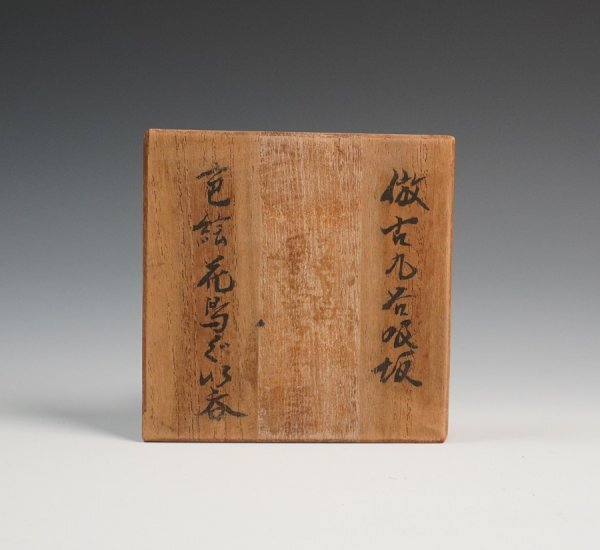 倣古九谷吸坂
色絵花鳥ぐい呑